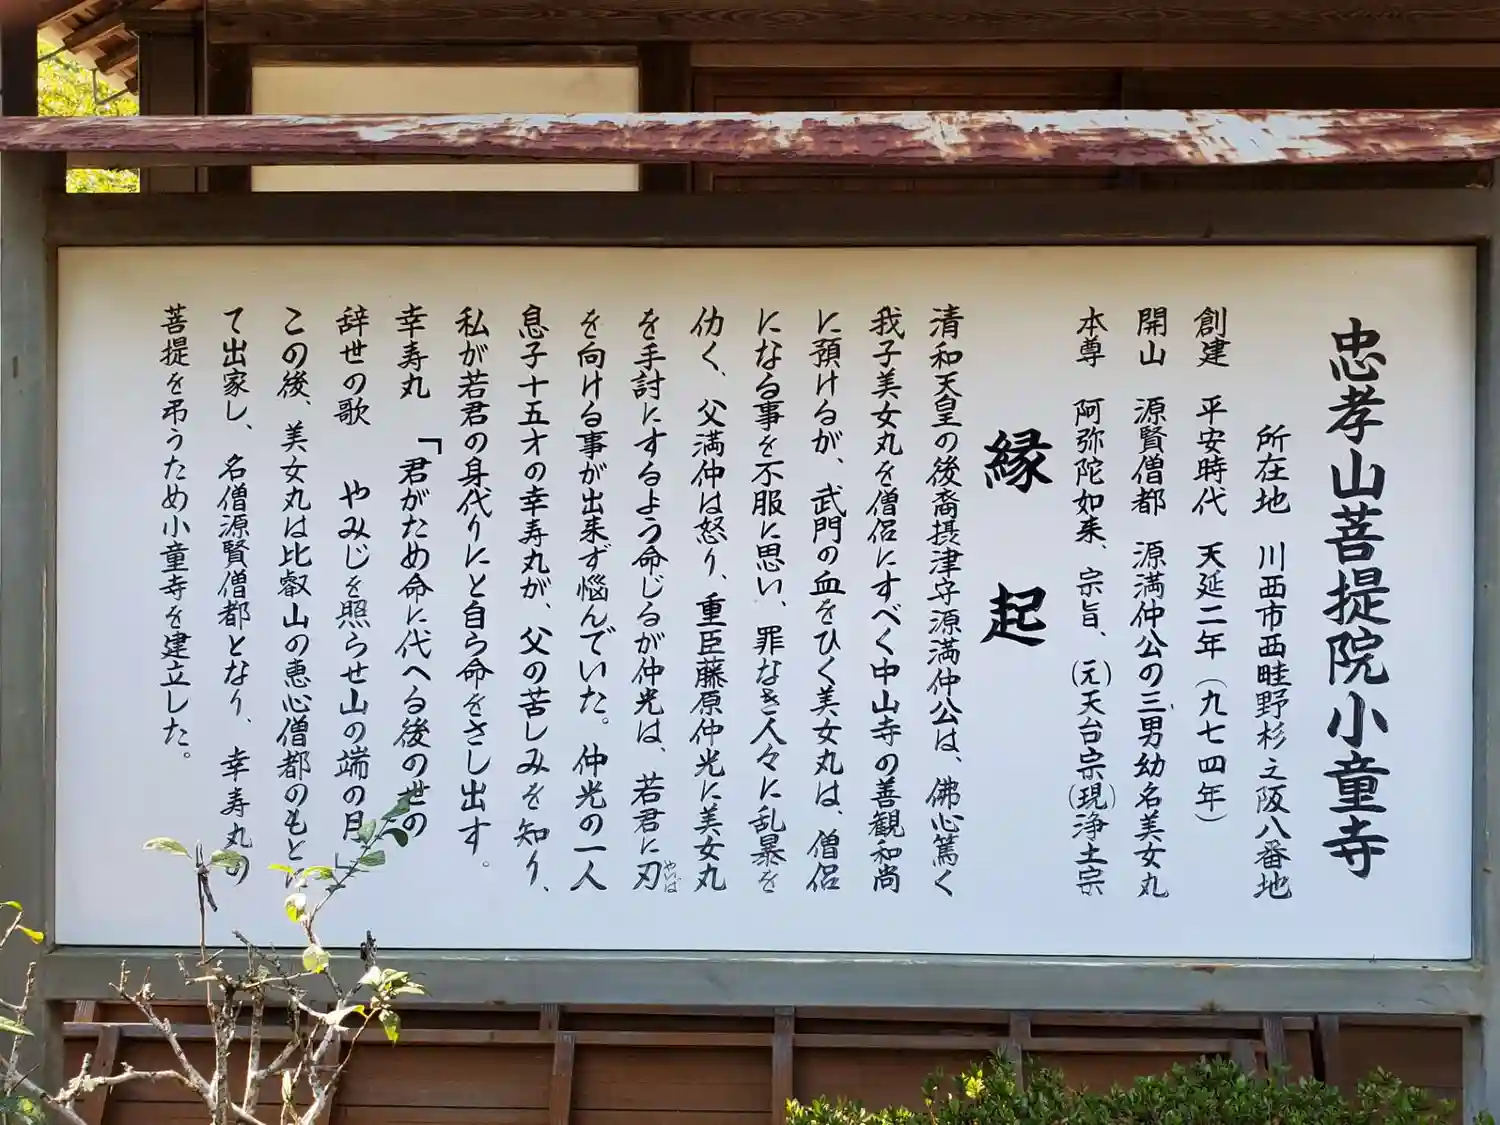 忠孝山菩提院小童寺
所在地 川西市西畦野杉之阪八番地
創建 平安時代 天延二年（九七四年）
開山 源賢僧都 源満仲公の三男幼名美女丸
本尊 阿弥陀如来、宗旨、(元)天台宗(現)浄土宗
縁起
清和天皇の後裔摂津守源満仲公は、佛心篤く
我子美女丸を僧侶にすべく中山寺の善観和尚
に預けるが、武門の血をひく美女丸は、僧侶
になる事を不服に思い、罪なき人々に乱暴を
仂く、父満仲は怒り、重臣藤原仲光に美女丸
を手討にするよう命じるが仲光は、若君に刃やいば
を向ける事が出来ず悩んでいた。仲光の一人
息子十五才の幸寿丸が、父の苦しみを知り、
私が若君の身代りにと自ら命をさし出す。
幸寿丸 「君がため命に代へる後の世の
辞世の歌 やみじを照らせ山の端の月」
この後、美女丸は比叡山の恵心僧都のもとに
て出家し、名僧源賢僧都となり、幸寿丸の
菩提を弔うため小童寺を建立した。